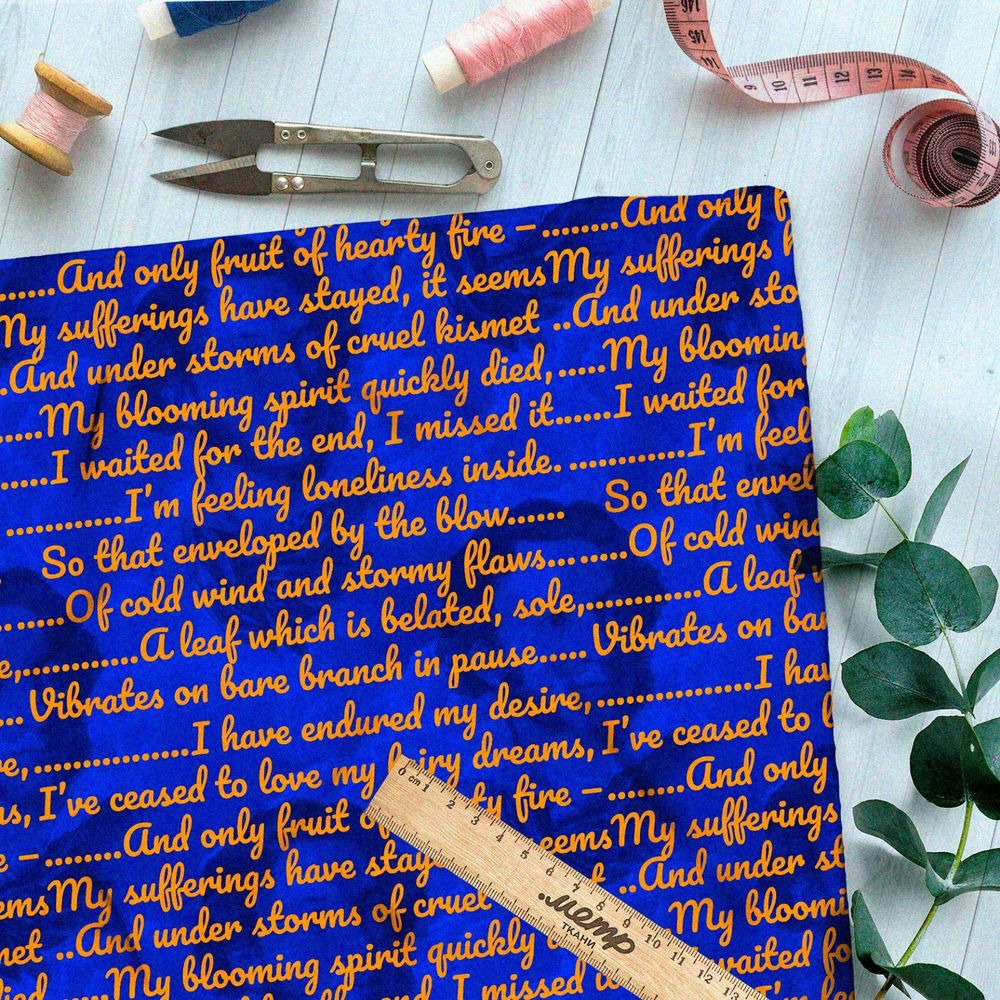 146
145
9 10 11 12 13 14
........And only fruit of hearty fire – .........And only f
My sufferings have stayed, it seemsMy sufferings h
.And under storms of cruel kismet ..And under sto
......My blooming spirit quickly died,.....My blooming
......I waited for the end, I missed it......I waited for
.............I'm feeling loneliness inside. .............I'm feel
So that enveloped by the blow...... So that envel
.........Of cold wind and stormy flaws.........Of cold wind
e,.............A leaf which is belated, sole,.............A leaf
...Vibrates on bare branch in pause.....Vibrates on bar
e,.................I have endured my desire,.................I hav
ns, I've ceased to love my fairy dreams, I've ceased to l
e – .........And only fruit of ty fire – .........And only
emsMy sufferings have stay seemsMy sufferings
met ..And under storms of cruel t ..And under st
ied,.....My blooming spirit quickly My bloomi
end, I missed it waited fo
I'm f
0 cm 1 2 3 4 5 6 7 8 9 10 11 12 13
.метр
ткани